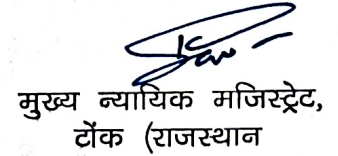 मुख्य न्यायिक मजिस्ट्रेट,
टोंक (राजस्थान